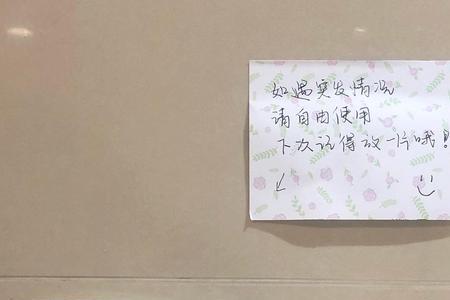 如遇突发情况
请自由使用
下次记得放一片哦！